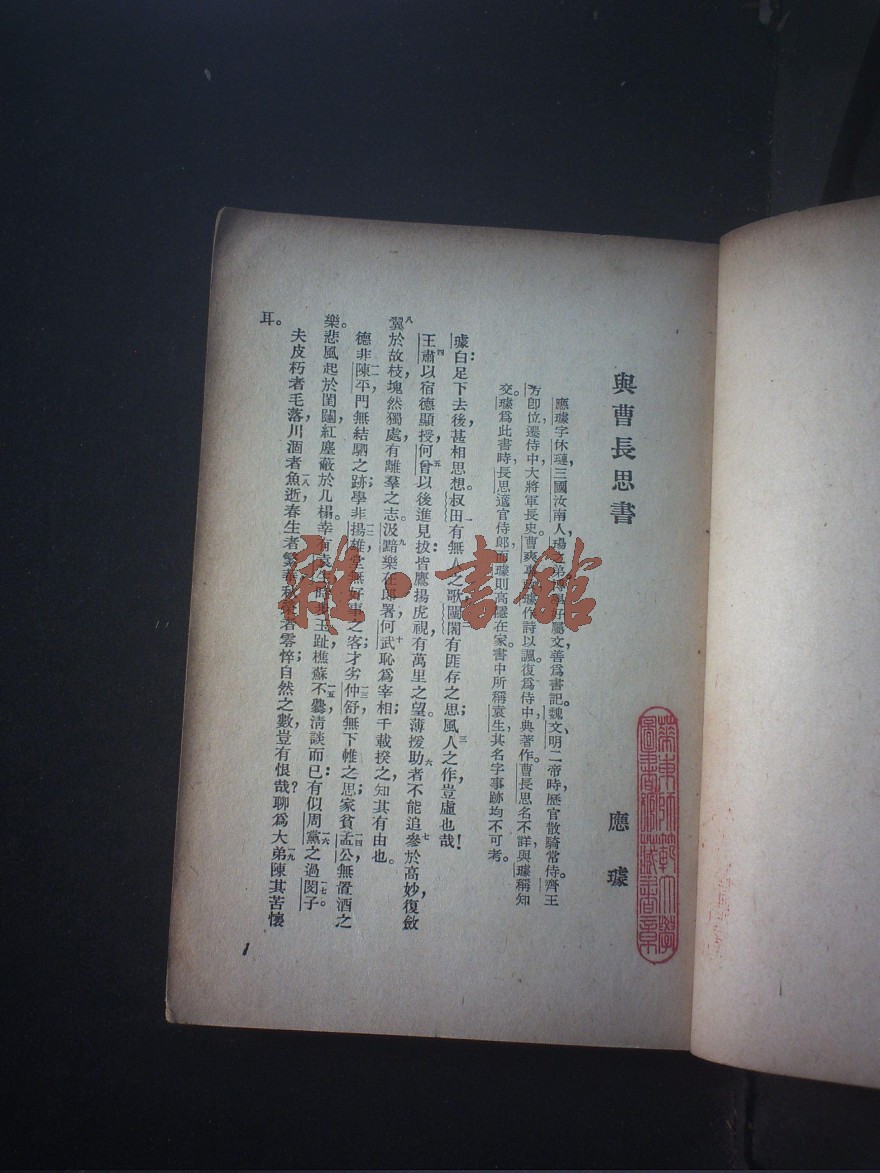 與曹長思書
應璩
應璩字休璉,三國汝南人,瑒弟。博學好屬文,善爲書記。魏文、明二帝時,歷官散騎常侍。齊王
芳卽位,遷侍中大將軍長史。曹爽專 璩作詩以諷。復爲侍中,典著作。曹長思名不詳,與璩稱知
交。璩爲此書時,長思適官侍郎,而璩則高隱在家。書中所稱袁生,其名字事跡均不可考。
璩白:足下去後,甚相思想。叔田一有無人之歌,闉闍二有匪存之思,風人三之作,豈虛也哉!
王肅四以宿德顯授,何曾五以後進見拔,皆鷹揚虎視,有萬里之望。薄援助六者,不能追參於高妙七,復斂
翼八於故枝,塊然獨處,有離羣之志。汲黯九樂在郎署,何武十恥爲宰相,千載揆之,知其有由也。
德非陳平一一,門無結駟之跡;學非揚雄一二,堂無好事之客;才劣仲舒一三,無下帷之思;家貧孟公一四,無置酒之
樂。悲風起於閨闥,紅塵蔽於几榻。幸有袁生,時步玉趾,樵蘇不爨一五,淸談而已:有似周黨一六之過閔子一七。
夫皮朽者毛落,川涸者魚逝一八,春生者繁華,秋榮者零悴,自然之數,豈有恨哉?聊爲大弟一九陳其苦懷
耳。
1
雅·書館
華東師範大學
圖書館藏書章